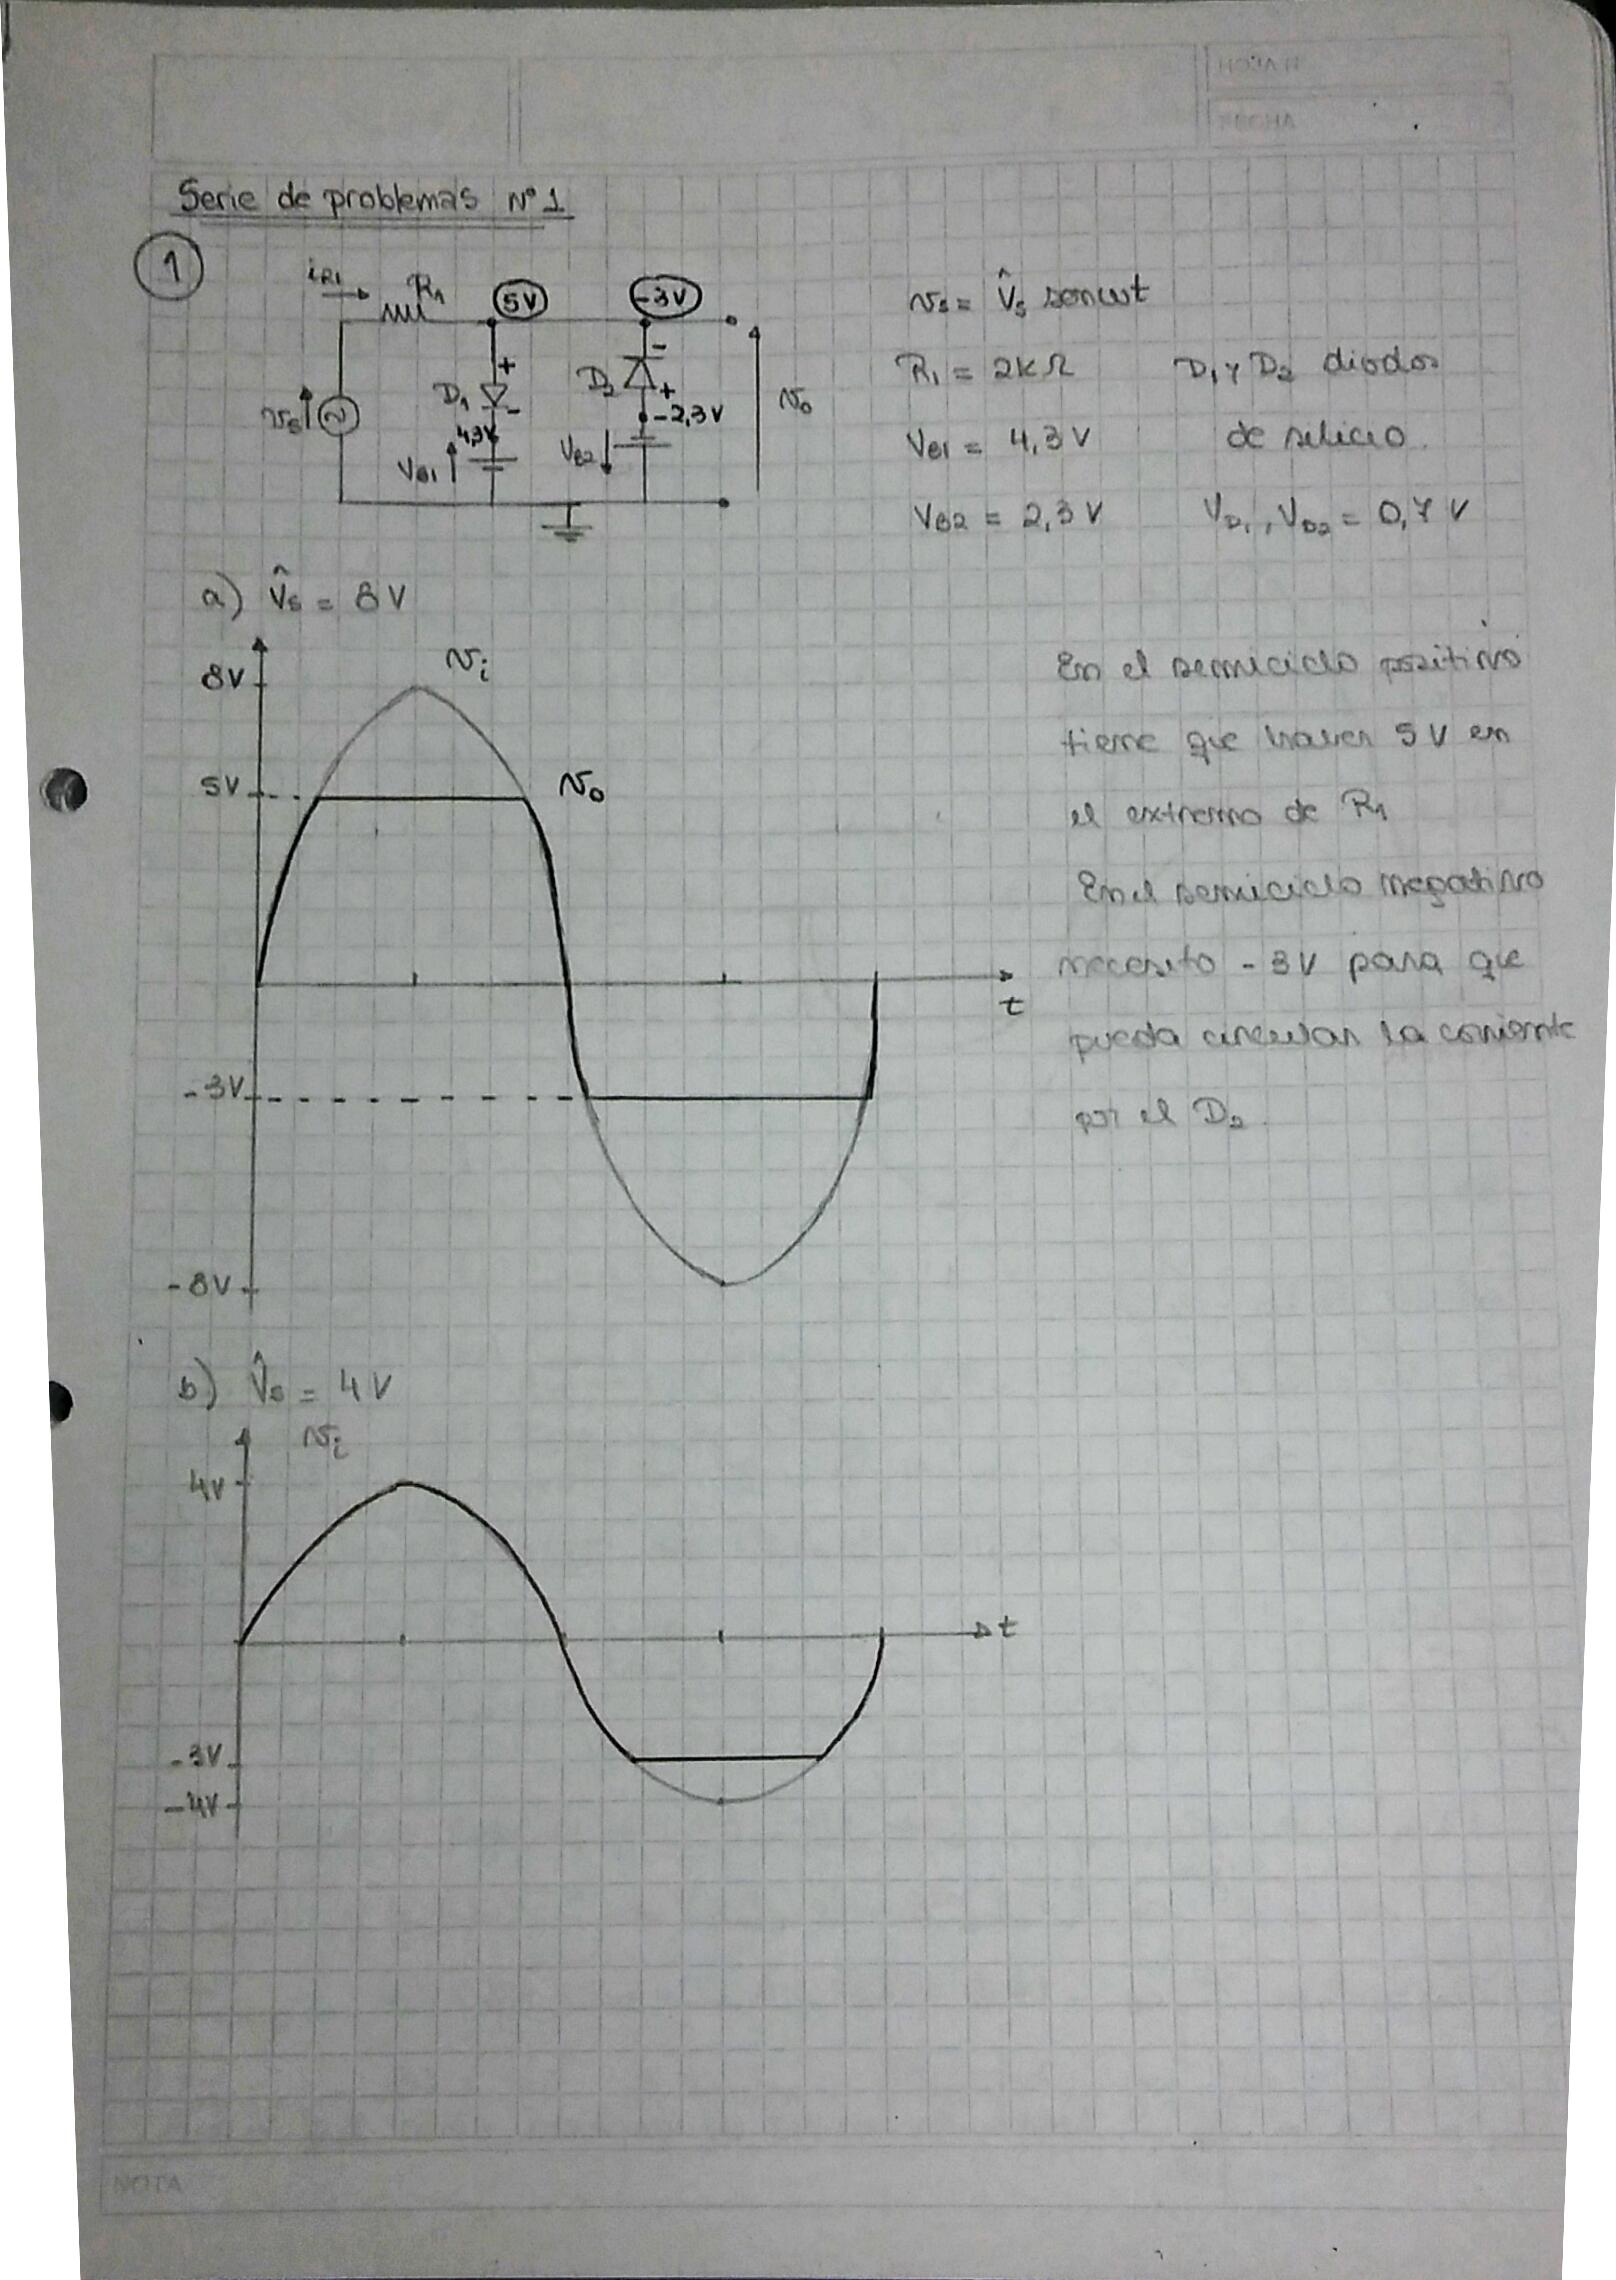 HOJA N°
FECHA
Serie de problemas N° 1
1
iR1 R1 5V -3V
vs D1 + - 4,3V VB1 D2 - + -2,3V VB2 vo
vs = V̂s senwt
R1 = 2KΩ D1 y D2 diodos
VB1 = 4,3 V de silicio.
VB2 = 2,3 V VD1, VD2 = 0,7 V
a) V̂s = 8V
8V vi
5V vo
t
-3V
-8V
En el semiciclo positivo
tiene que haver 5V en
el extremo de R1
En el semiciclo negativo
necesito -3V para que
pueda circular la corriente
por el D2.
b) V̂s = 4V
vi
4V
t
-3V
-4V
NOTA